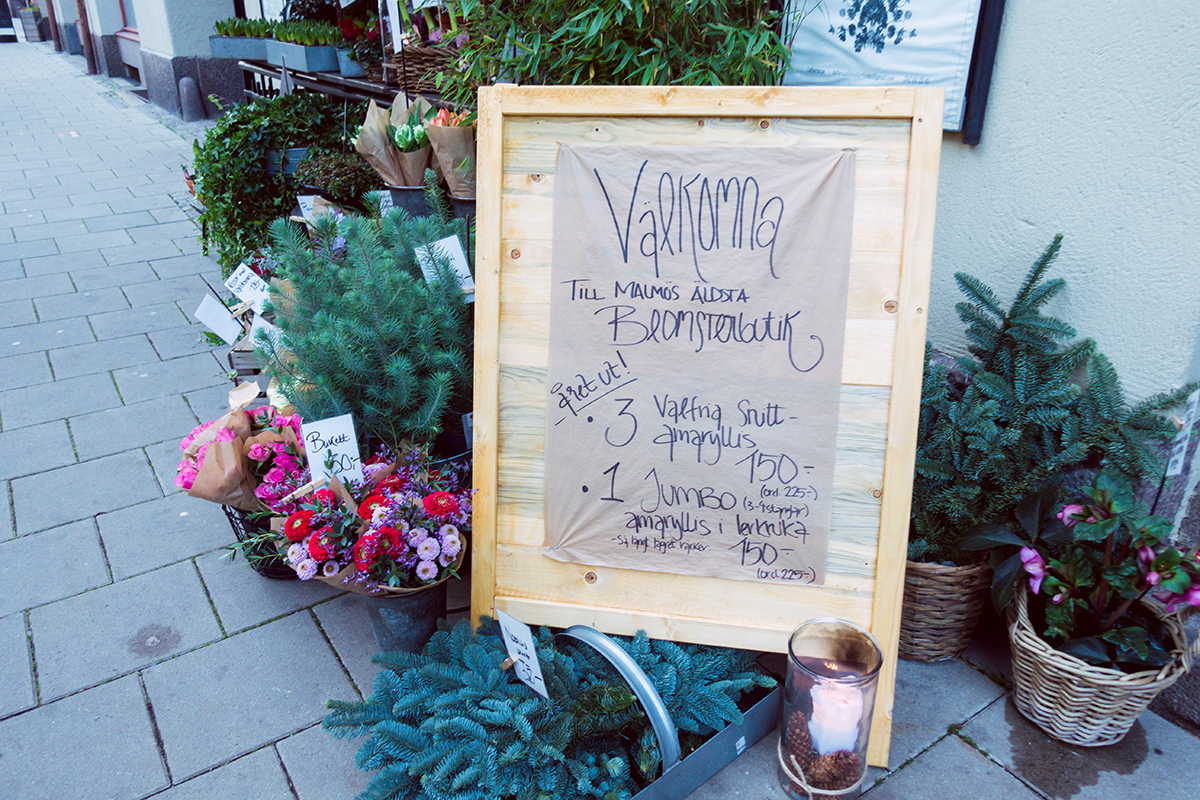 Välkomna
TILL MALMÖS ÄLDSTA
Blomsterbutik
året ut!
• 3 Valfria Snitt-
amaryllis
150:-
(ord. 225:-)
• 1 JUMBO (3-4 stänglar)
amaryllis i lerkruka
- Så långt lagret räcker
150:-
(ord. 225:-)
Bukett
150:-